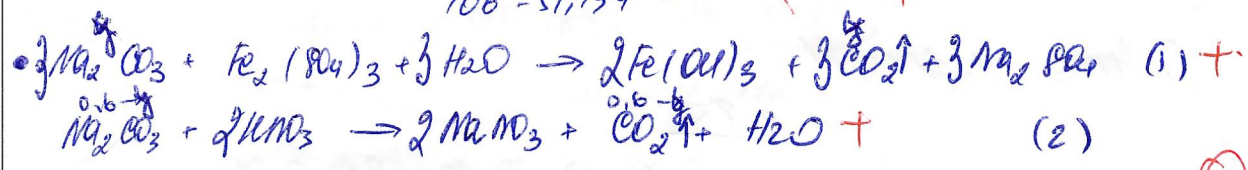 3Na₂CO₃ + Fe₂(SO₄)₃ + 3H₂O → 2Fe(OH)₃ + 3CO₂↑ + 3Na₂SO₄ (1) +
0,6-y 0,6-y
Na₂CO₃ + 2HNO₃ → 2NaNO₃ + CO₂↑ + H₂O + (2)